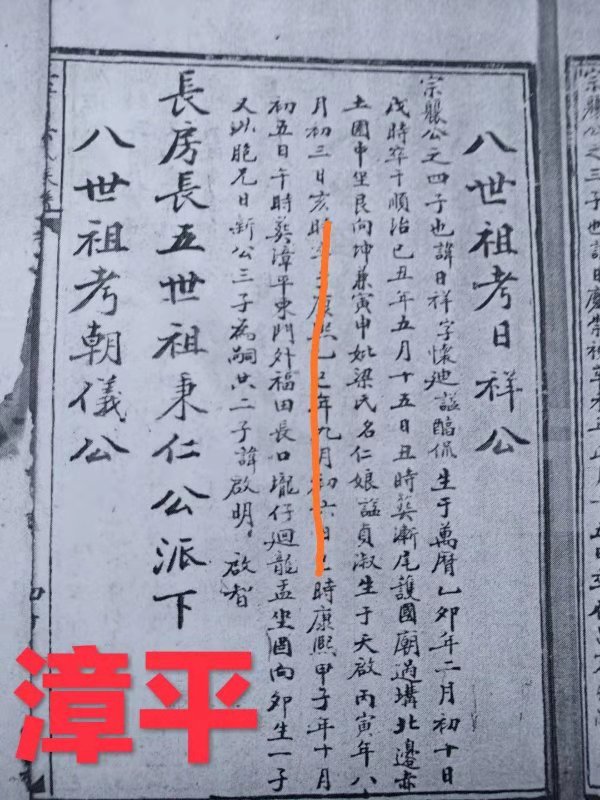 八世祖考日祥公
宗襲公之四子也諱日祥字懷廸諡臨侃生于萬曆乙卯年二月初十日
戌時卒于順治己丑年五月十五日丑時葬漸尾護國廟過堪北邊赤
土園中坐艮向坤兼寅申妣梁氏名仁娘諡貞淑生于天啟丙寅年八
月初三日亥時 康熙 年九月初六日 時康熙甲子年十月
初五日午時葬漳平東門外福田長口壠仔廻龍孟坐酉向卯生一子
又以胞兄日新公三子為嗣共二子諱啟明。啟智
長房長五世祖秉仁公派下
八世祖考朝儀公
宗襲公之三子也諱日
漳平